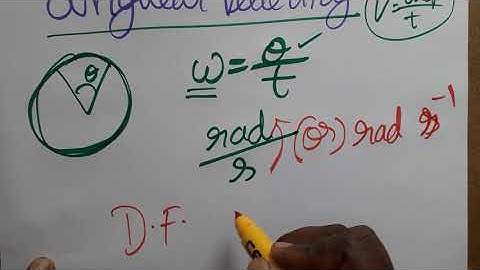 Angular Velocity
θ
ω = θ/t
rad/s (or) rad s⁻¹
D.F.